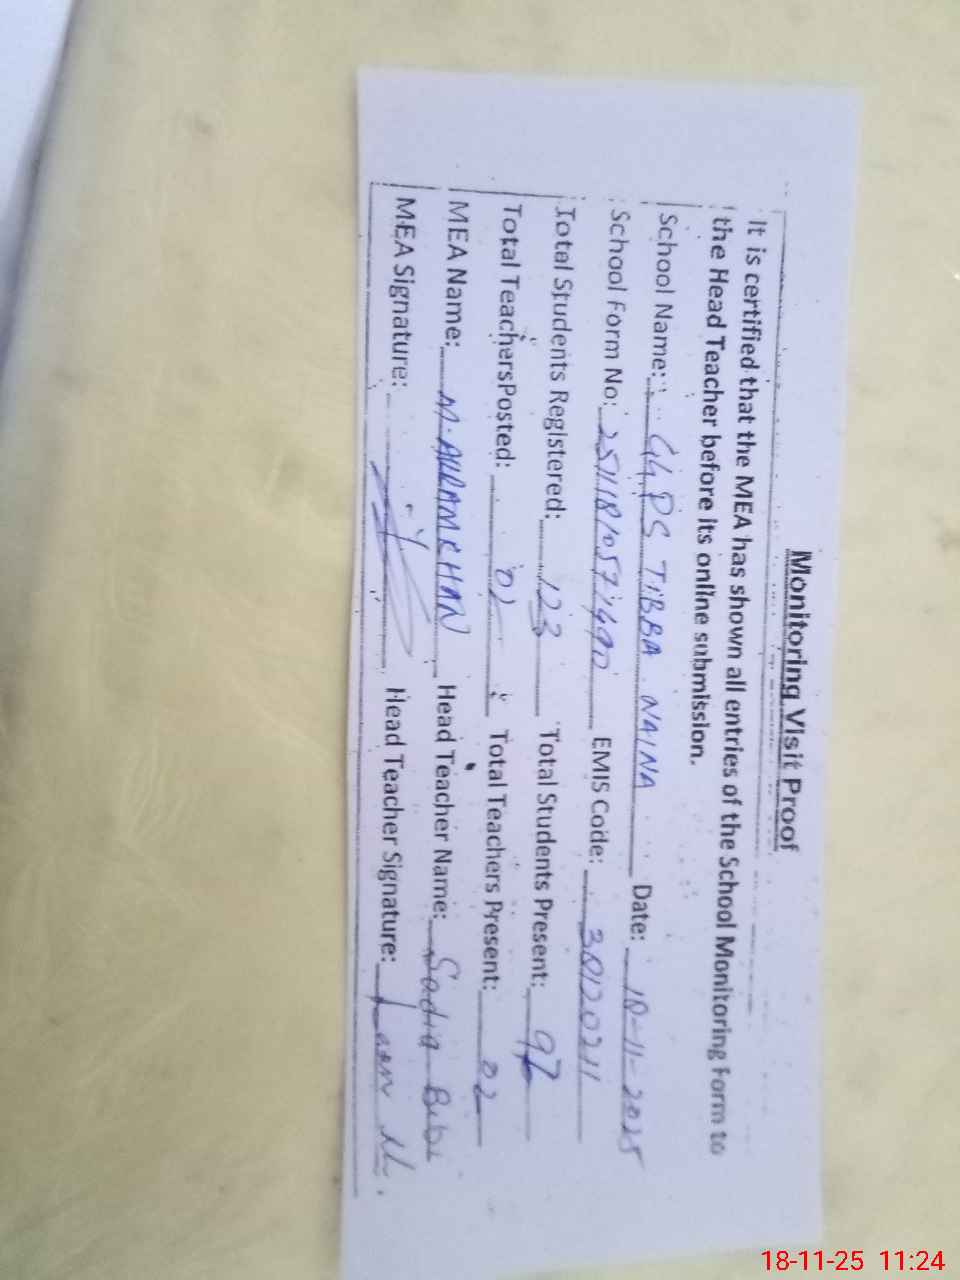 Monitoring Visit Proof
It is certified that the MEA has shown all entries of the School Monitoring Form to
the Head Teacher before its online submission.
School Name: GGPS TIBBA NAINA Date: 18-11-2025
School Form No: EMIS Code:
Total Students Registered: 123 Total Students Present: 97
Total TeachersPosted: 02 Total Teachers Present: 02
MEA Name: M. AKRAM KHAN Head Teacher Name: Sadia Bibi
MEA Signature: Head Teacher Signature:
18-11-25 11:24